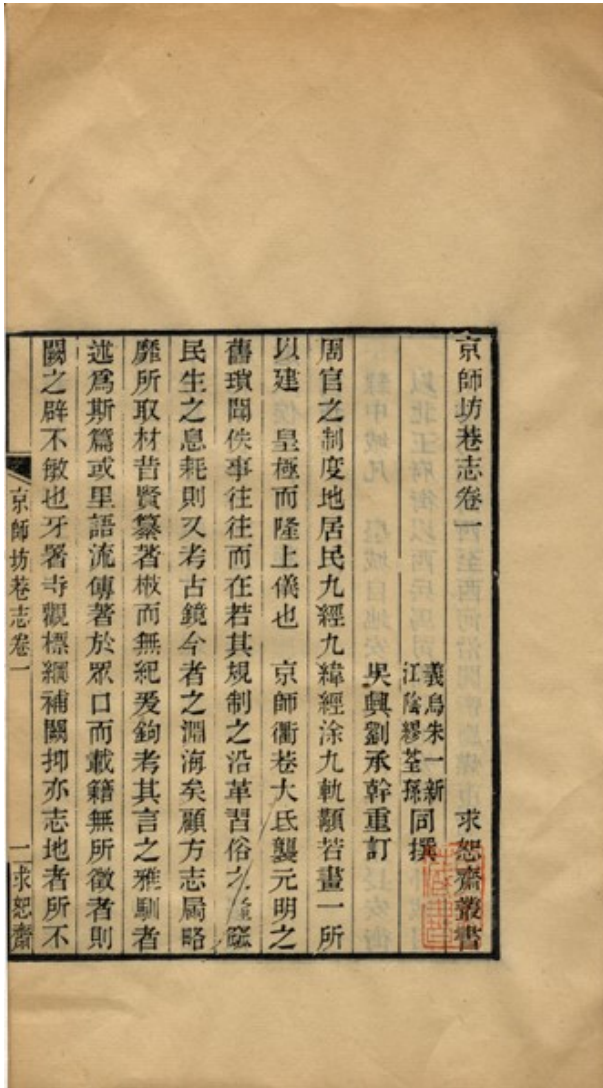 京師坊巷志卷一　求恕齋叢書
義烏朱一新
江陰繆荃孫同撰
吳興劉承幹重訂
周官之制度地居民九經九緯經涂九軌顯若畫一所
以建　皇極而隆上儀也　京師衢巷大氐襲元明之
舊瑣聞佚事往往而在若其規制之沿革習俗之隆窳
民生之息耗則又考古鏡今者之淵海矣顧方志局略
靡所取材昔賢纂著棷而無紀爰鉤考其言之雅馴者
述爲斯篇或里語流傳著於眾口而載籍無所徵者則
闕之辟不敏也牙署寺觀標綱補闕抑亦志地者所不
京師坊巷志卷一　一　求恕齋